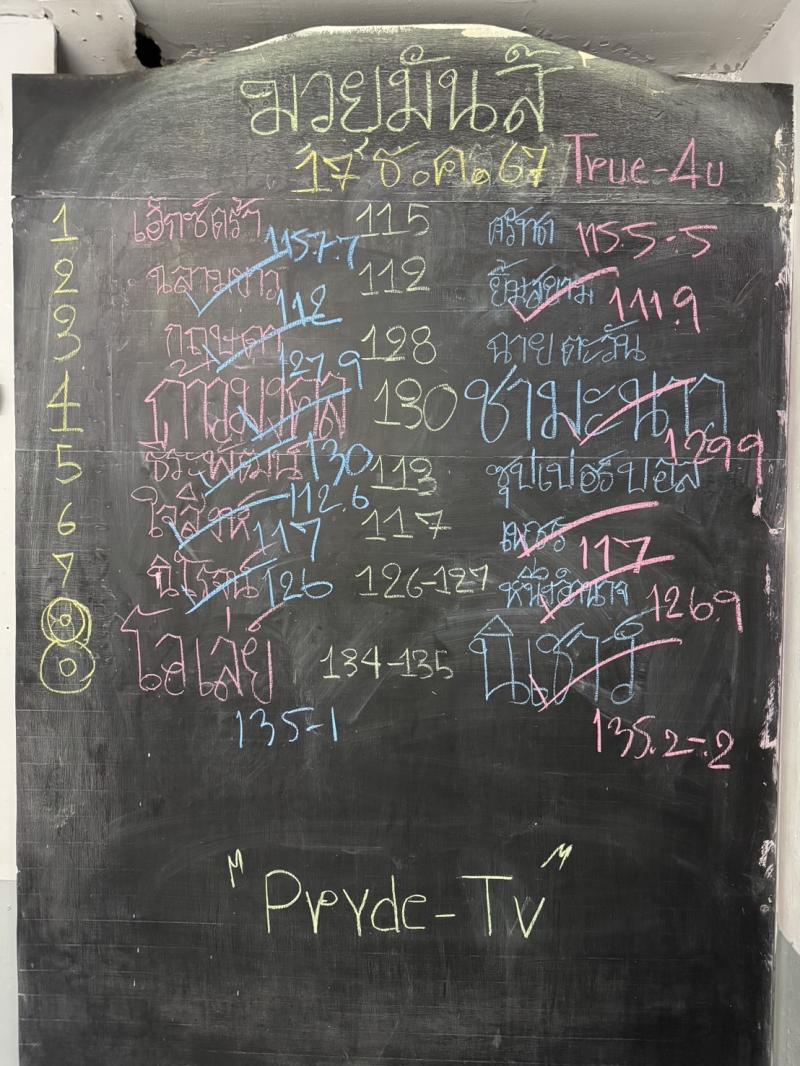 มวยมันส์
17 ธ.ค. 67 True-4u
1 เอ็กซ์ตร้า 115 ศรัทธา
115.7-.7 115.5-.5
2 ฉลามขาว 112 ยิ้มสยาม
112 111.9
3 กฤษดา 128 ฉายตะวัน
127.9
4 ก้าวมงคล 130 ชามะนาว
130 129.9
5 ธีระพัฒน์ 113 ซุปเปอร์บอล
112.6
6 ใจสิงห์ 117 เพชร
117 117
7 นิโรจน์ 126-127 หนึ่งอำนาจ
126 126.9
8 โอเล่ย์ 134-135 นิชาร์
135-1 135.2-.2
"Pryde-Tv"